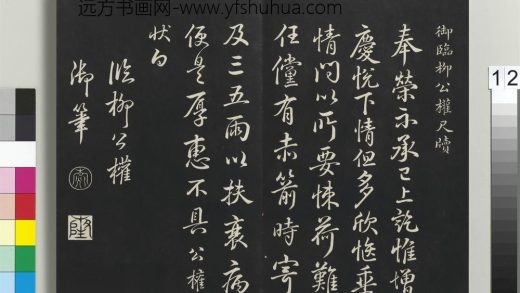 远方书画网-www.yfshuhua.com
御臨柳公權尺牘
奉榮示承已上訖惟增
慶悅下情但多欣愜垂
情問以所要悚荷難
任儻有赤箭時寄
及三五兩以扶衰病
便是厚惠不具公權
狀白
臨柳公權
御筆
12